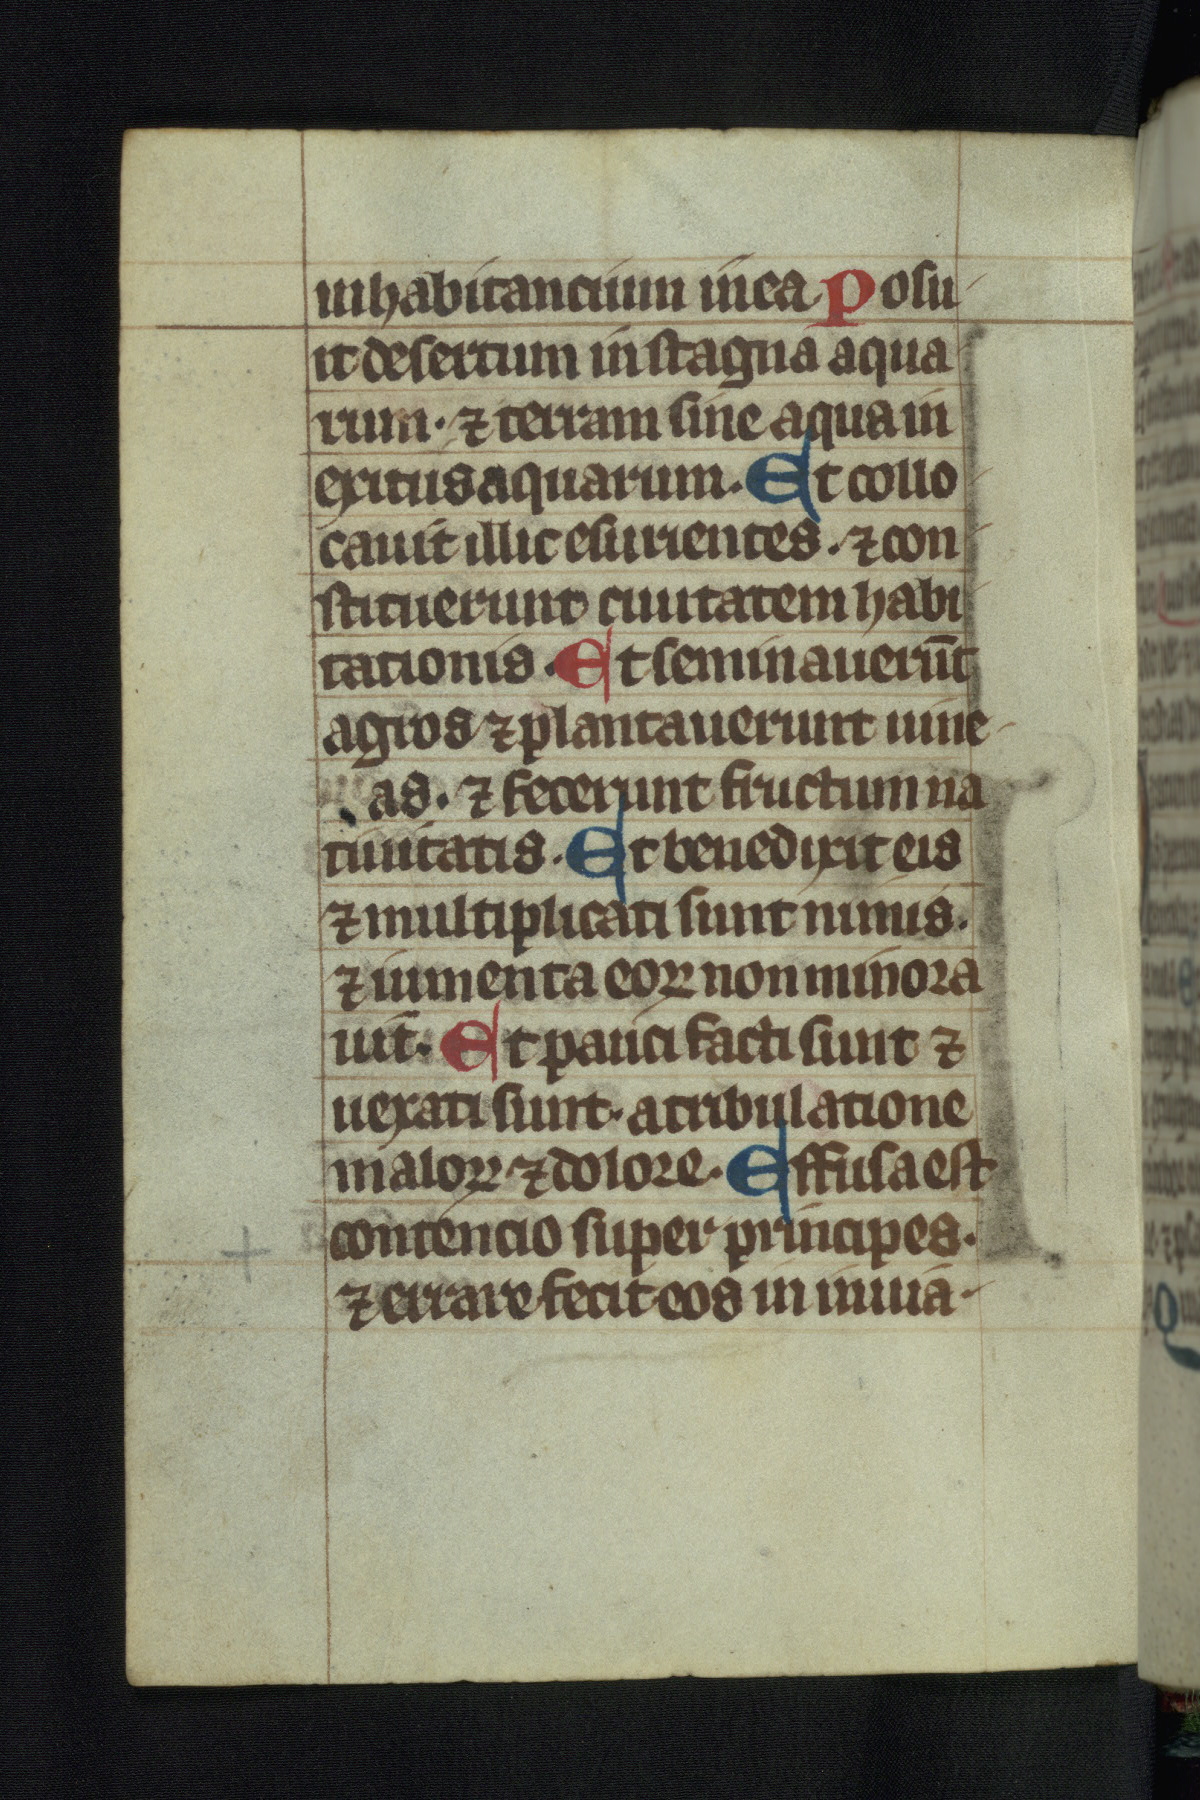 inhabitancium in ea Posu
it desertum in stagna aqua
rum. ⁊ terram sine aqua in
exitus aquarum. Et collo
cauit illic esurientes. ⁊ con
stituerunt ciuitatem habi
tationis. Et seminauerūt
agros ⁊ plantauerunt uine
as. ⁊ fecerunt fructum na
tiuitatis. Et benedixit eis
⁊ multiplicati sunt nimis.
⁊ iumenta eoꝝ non minora
uit̄. Et pauci facti sunt ⁊
uexati sunt. a tribulatione
maloꝝ ⁊ dolore. Effusa est
contencio super principes.
⁊ errare fecit eos in inuia